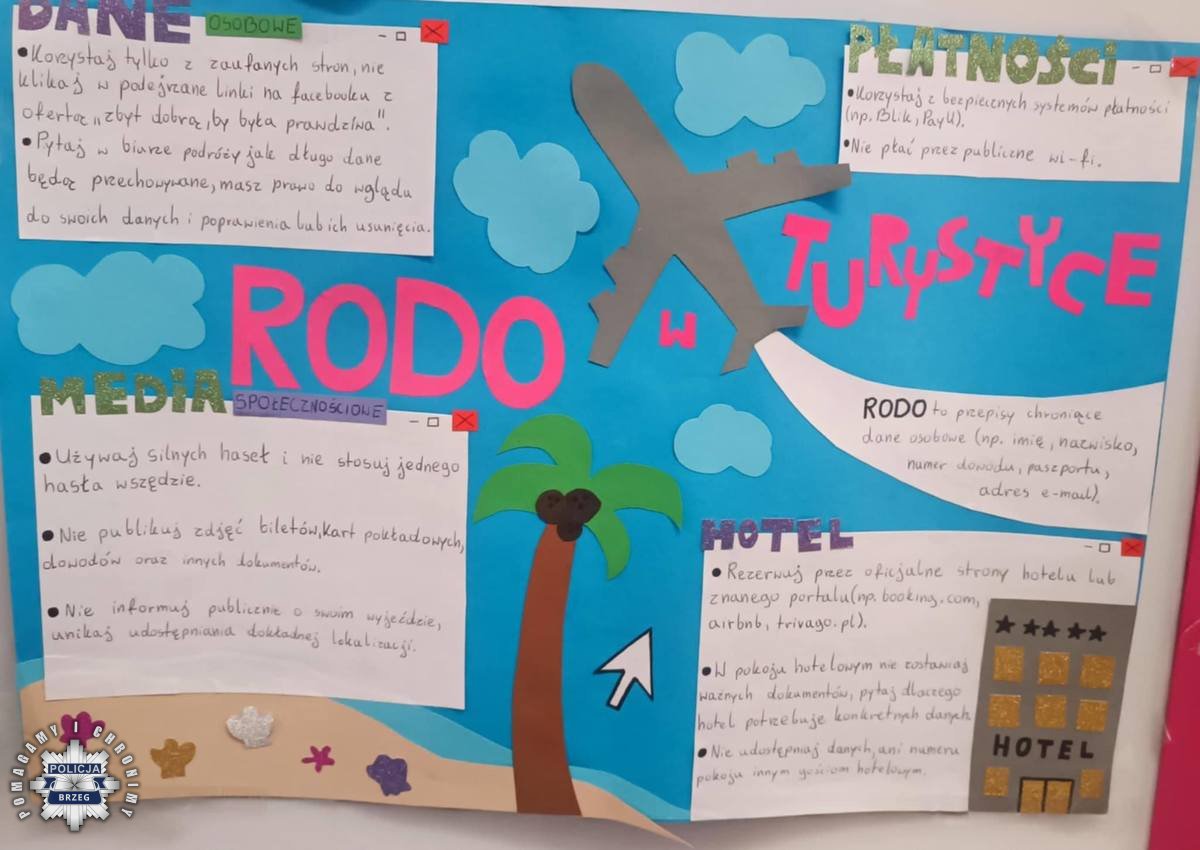 DANE OSOBOWE
• Korzystaj tylko z zaufanych stron, nie
klikaj w podejrzane linki na facebooku z
ofertą „zbyt dobrą, by była prawdziwa".
• Pytaj w biurze podróży jak długo dane
będą przechowywane, masz prawo do wglądu
do swoich danych i poprawienia lub ich usunięcia.
PŁATNOŚCI
• Korzystaj z bezpiecznych systemów płatności
(np. Blik, PayU).
• Nie płać przez publiczne wi-fi.
RODO
w
TURYSTYCE
MEDIA SPOŁECZNOŚCIOWE
• Używaj silnych haseł i nie stosuj jednego
hasła wszędzie.
• Nie publikuj zdjęć biletów, kart pokładowych,
dowodów oraz innych dokumentów.
• Nie informuj publicznie o swoim wyjeździe,
unikaj udostępniania dokładnej lokalizacji.
RODO to przepisy chroniące
dane osobowe (np. imię, nazwisko,
numer dowodu, paszportu,
adres e-mail).
HOTEL
• Rezerwuj przez oficjalne strony hotelu lub
znanego portalu (np. booking.com,
airbnb, trivago.pl).
• W pokoju hotelowym nie zostawiaj
ważnych dokumentów, pytaj dlaczego
hotel potrzebuje konkretnych danych
• Nie udostępniaj danych, ani numeru
pokoju innym gościom hotelowym.
HOTEL
POMAGAMY I CHRONIMY
POLICJA
BRZEG